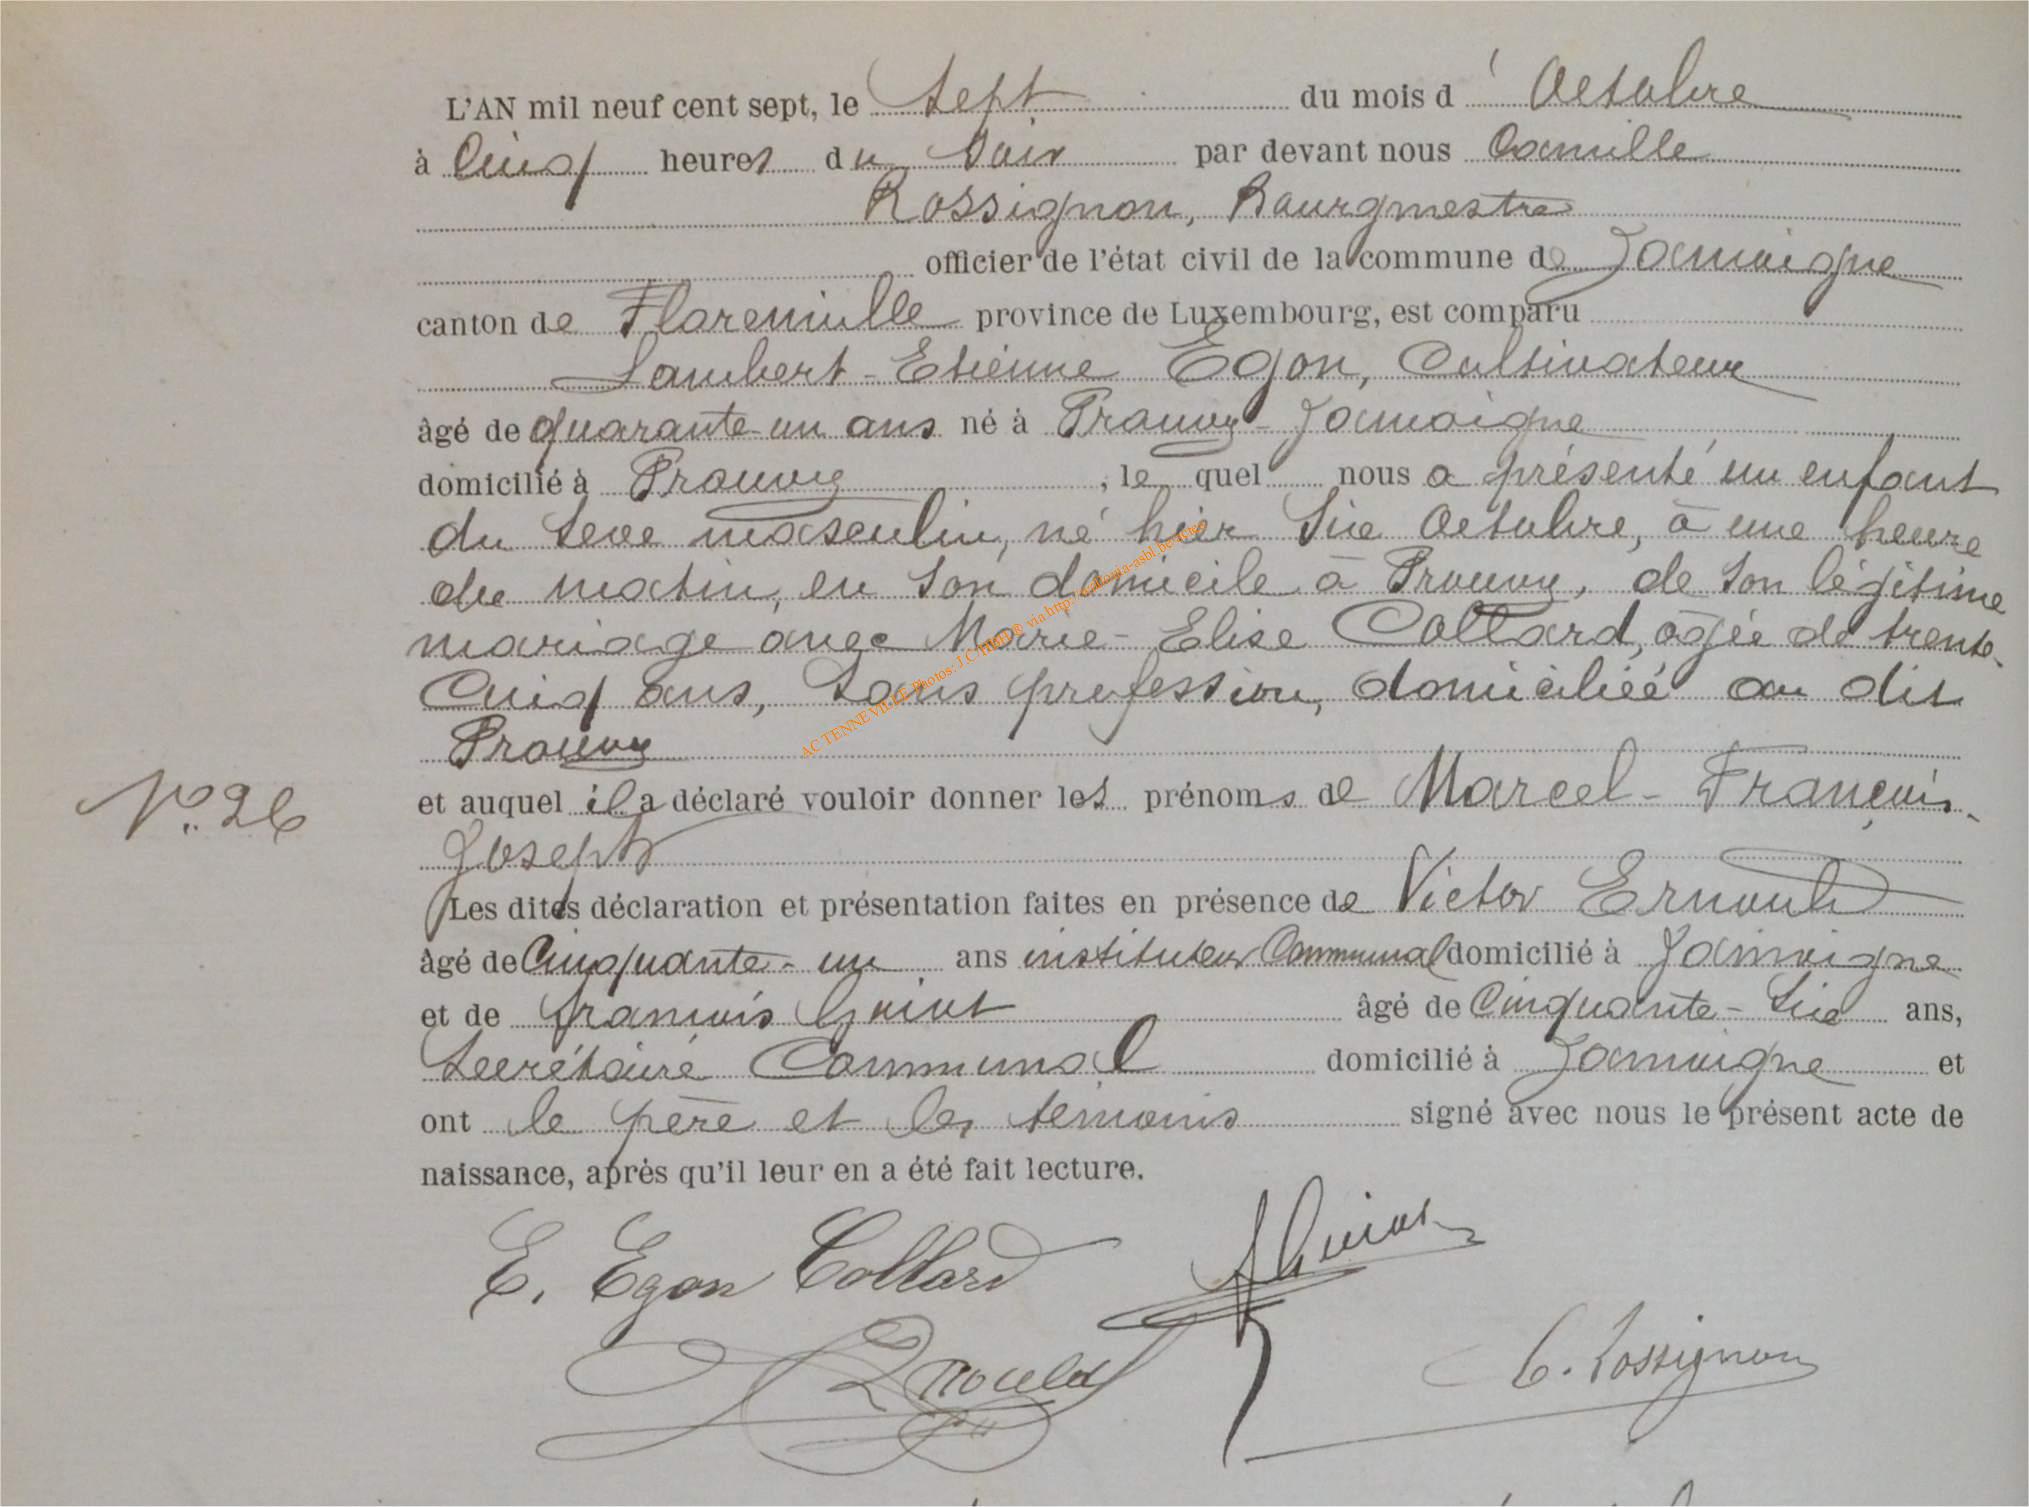 L'AN mil neuf cent sept, le sept du mois d' Octobre
à Cinq heures du Soir par devant nous Camille
Rossignon, Bourgmestre
officier de l'état civil de la commune de Jamoigne
canton de Florenville province de Luxembourg, est comparu
Lambert-Etienne Egon, Cultivateur
âgé de quarante-un ans né à Prouvy-Jamoigne
domicilié à Prouvy, lequel nous a présenté un enfant
du Sexe masculin, né hier Six Octobre, à une heure
du matin, en Son domicile à Prouvy, de Son légitime
mariage avec Marie-Elise Collard, âgée de trente-
Cinq ans, Sans profession, domiciliée au dit
Prouvy
Nº 26
et auquel il a déclaré vouloir donner les prénoms de Marcel-François-
Joseph
Les dites déclaration et présentation faites en présence de Victor Ernould
âgé de Cinquante-un ans instituteur Communal domicilié à Jamoigne
et de François Guiot âgé de Cinquante-Six ans,
Secrétaire Communal domicilié à Jamoigne et
ont le père et les témoins signé avec nous le présent acte de
naissance, après qu'il leur en a été fait lecture.
E. Egon Collard
Guiot
Ernould
C. Rossignon
AC TENNEVILLE Photos: J.C